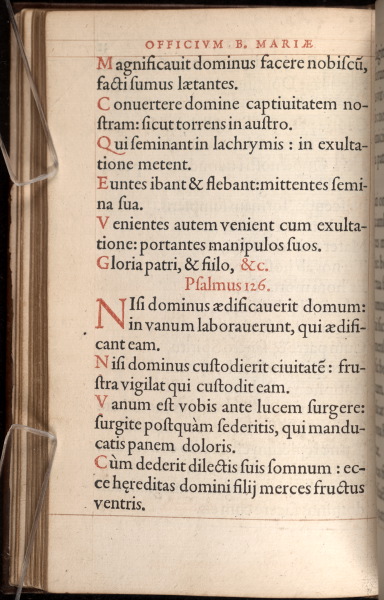 OFFICIVM B. MARIÆ
Magnificauit dominus facere nobiſcũ,
facti ſumus lætantes.
Conuertere domine captiuitatem no-
ſtram: ſicut torrens in auſtro.
Qui ſeminant in lachrymis : in exulta-
tione metent.
Euntes ibant & flebant: mittentes ſemi-
na ſua.
Venientes autem venient cum exulta-
tione: portantes manipulos ſuos.
Gloria patri, & filo, &c.
Pſalmus 126.
NIſi dominus ædificauerit domum:
in vanum laborauerunt, qui ædifi-
cant eam.
Niſi dominus cuſtodierit ciuitatẽ : fru-
ſtra vigilat qui cuſtodit eam.
Vanum eſt vobis ante lucem ſurgere:
ſurgite poſtquàm ſederitis, qui mandu-
catis panem doloris.
Cùm dederit dilectis ſuis ſomnum : ec-
ce hęreditas domini filij merces fructus
ventris.